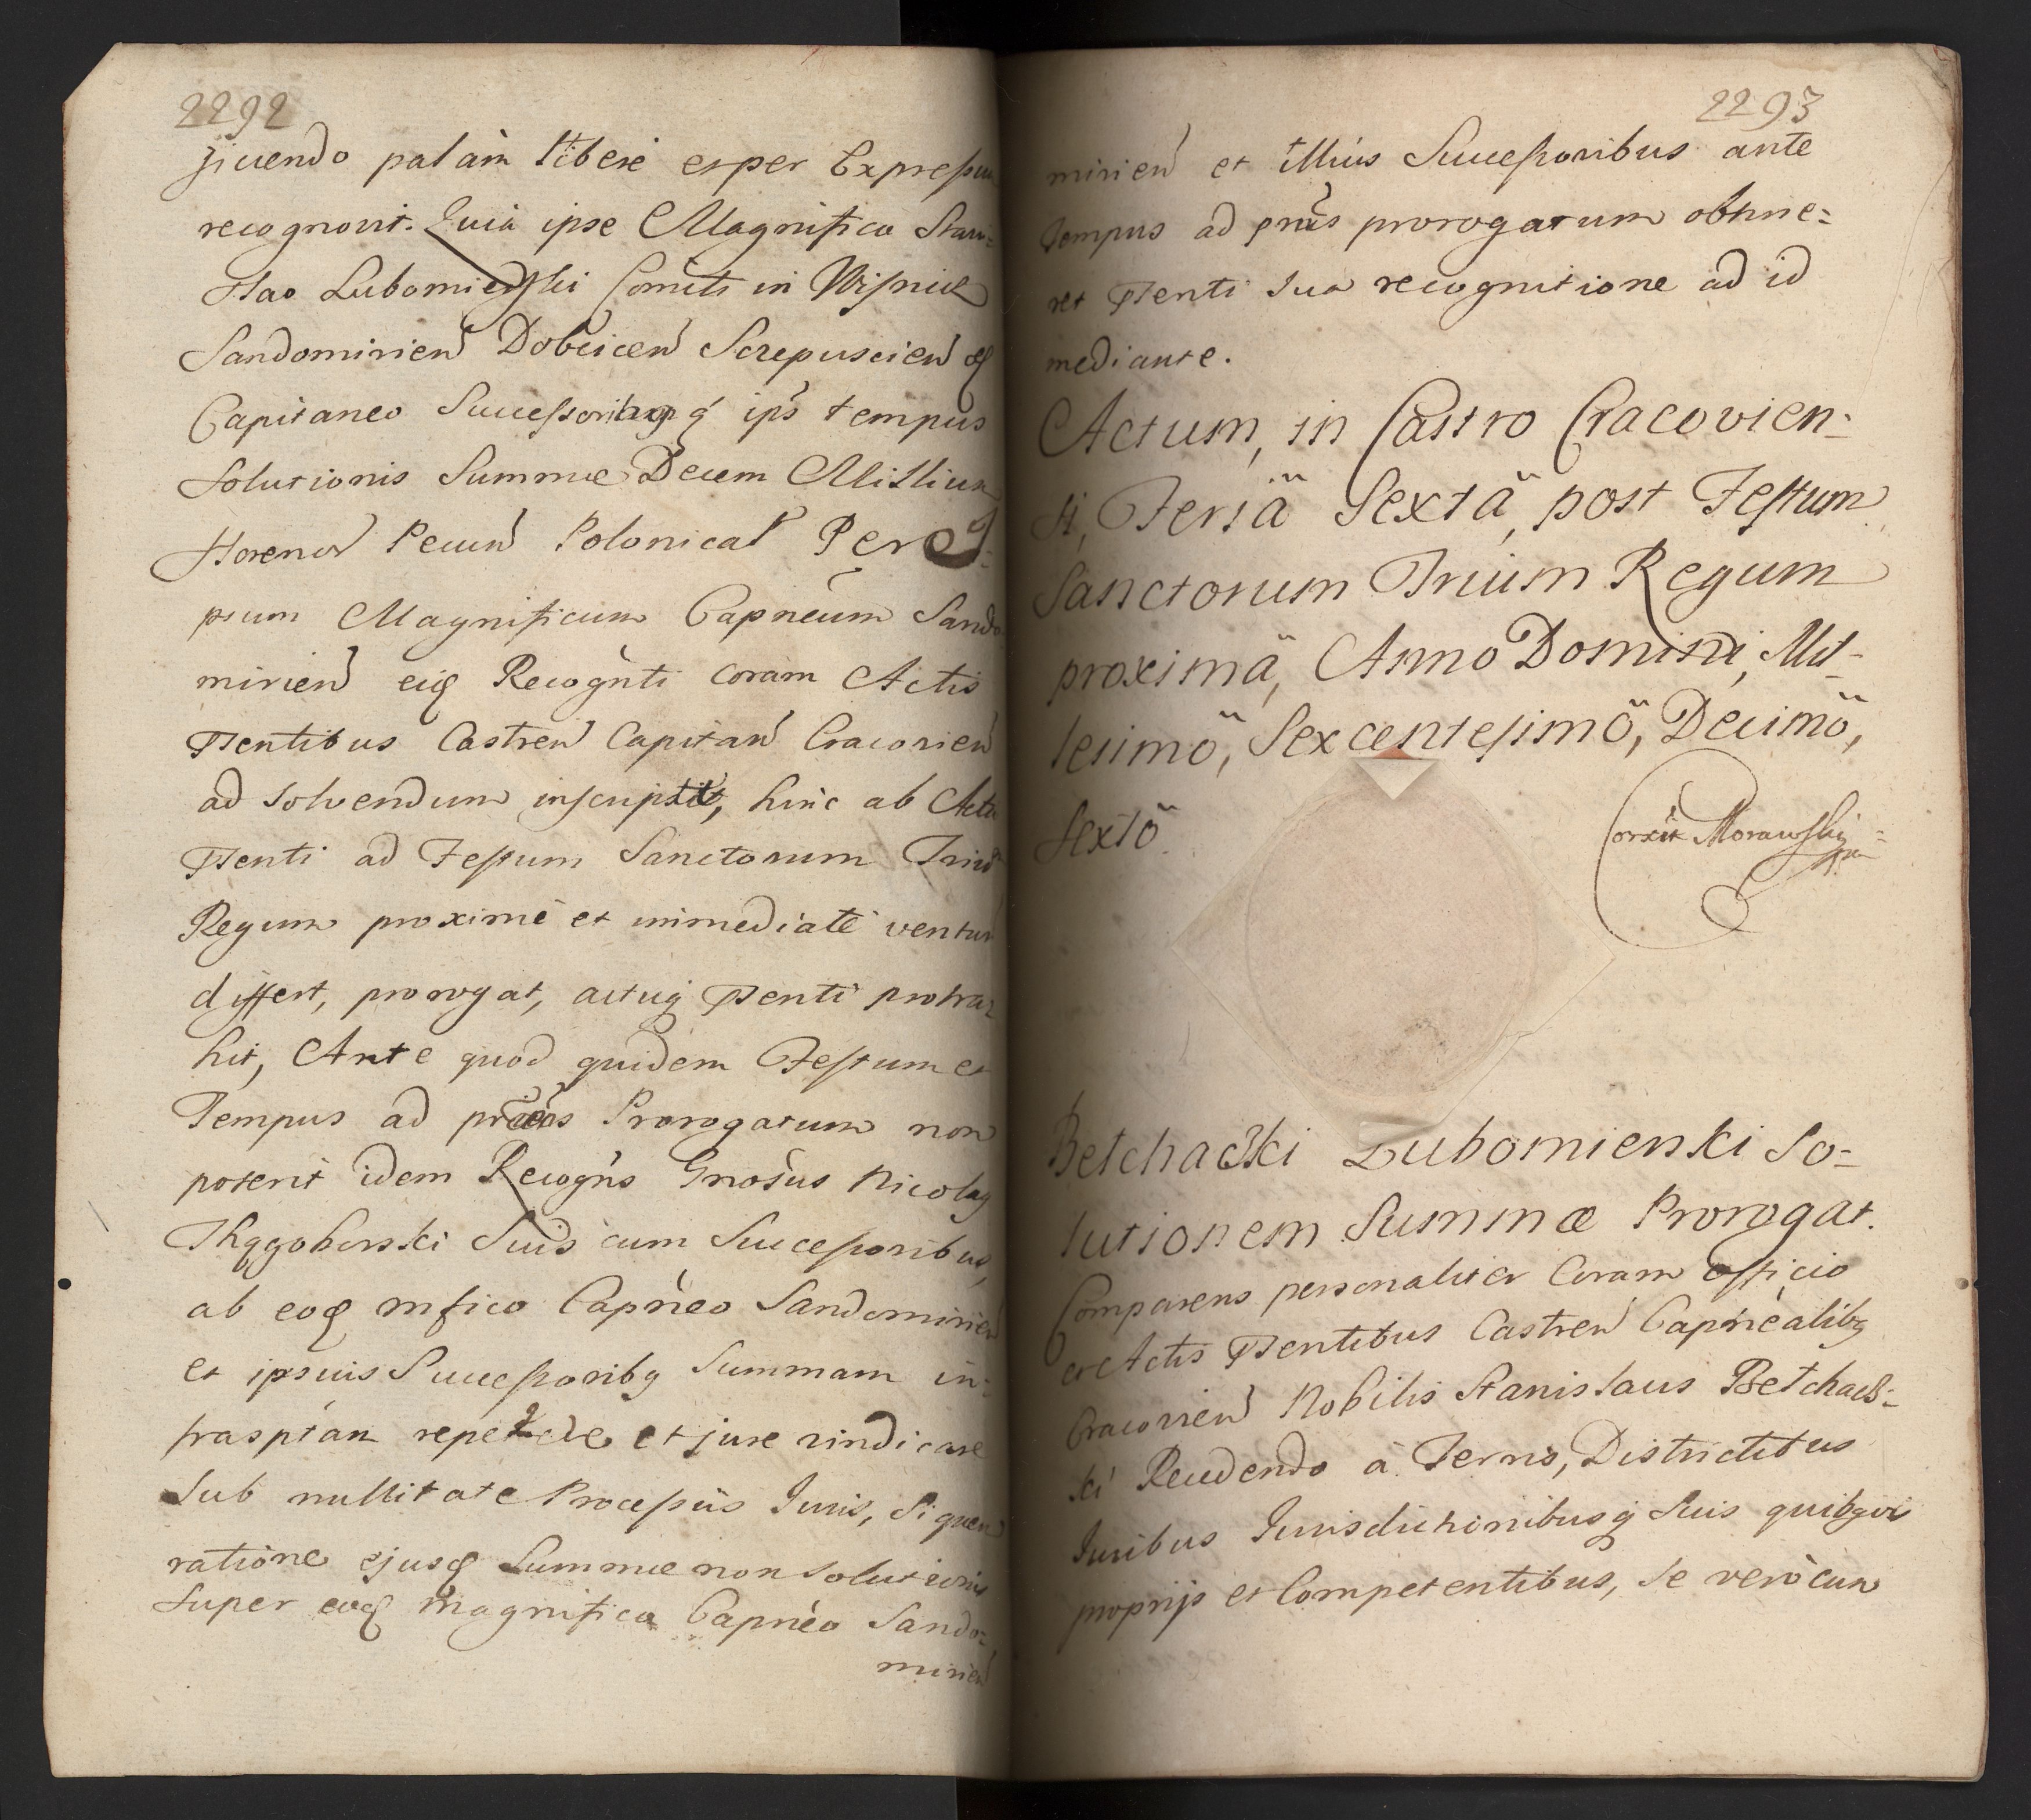 2292
jicuendo palàm liberè etper Expressum
recognovit. Quia ipse Magnifico Stani-
slao Lubomirski Comiti in Wisnicz
Sandomirien Dobcicen Scepuscien etc
Capitaneo Successoribusq ips tempus
Solutionis Summæ Decem Millium
florenor Pecun Polonical Per
psum Magnificum Capneum Sando
mirien eiq Recognti coram Actis
Psentibus Castren Capitan Cracovien
ad solvendum inscript, hinc ab Actu
Psenti ad Festum Sanctorum Trium
Regum proximè et immediatè ventur
differt, prorogat, actuq Psenti protra-
hit, Ante quod quidem Festum et
Tempus ad prns Prorogatum non
poterit idem Recogns Gnosus Nicolaq
Kęgoborski Suis cum Successoribus,
ab eoq mfico Capneo Sandomirien
et ipsuis Successoribq Summam in-
frasptan repetede et jure vindicare
Sub nullitate Processus Juris, Si quem
ratione ejusq Summæ non solutionis
Super eoq magnifico Capneo Sando-
mirien
2293
mirien et illius Successoribus ante
tempus ad prns prorogatum obtine-
ret Psenti sua recognitione ad id
mediante.
Actum, in Castro Cracovien-
si, Feria Sexta, post Festum
Sanctorum Trium Regum
proximä, Anno Domini, Mil-
lesimo, Sexcentesimo, Decimo,
Sexto.
Corxit Morawski
Betchacki Lubomienski So-
lutionem Summæ Prorogat.
Comparens personaliter Coram officio
et Actis Psentibus Castren Capnealibq
Cracovien Nobilis Stanislaus Betchac-
ki Recedendo à Terris, Districtibus
Juribus Jurisdictionibusq Suis quibqvis
proprijs et Competentibus, Se verò cum